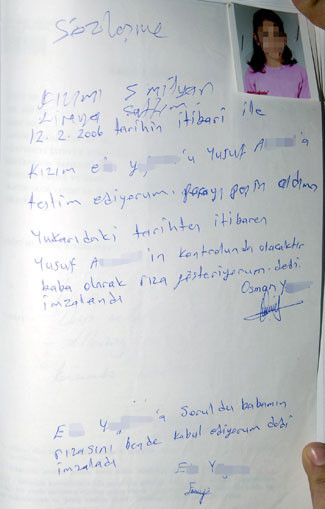 Sözleşme
Kızımı 5 milyar
Liraya sattım
12.2-2006 tarihin itibari ile
Kızım e Y 'u Yusuf A 'a
teslim ediyorum. parayı peşin aldım
yukarıdaki tarihten itibaren
Yusuf A in kontrolunda olacaktır
baba olarak rıza gösteriyorum. dedi.
imzalandı Osman Y
E Y 'a Soruldu babamın
rızasını bende kabul ediyorum dedi
imzaladı E Y